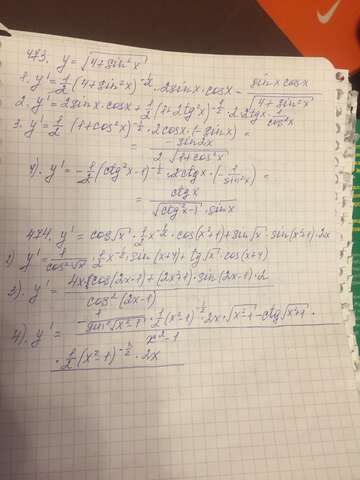 473. y = √(4+sin²x)
1. y' = 1/2 (4+sin²x)^(-1/2) · 2sinx · cosx = sinx cosx / √(4+sin²x)
2. y' = 2sinx cosx + 1/2 (1+2tg²x)^(-1/2) · 2 · 2tgx · 1/cos²x
3. y' = 1/2 (1+cos²x)^(-1/2) · 2cosx · (-sinx) =
= -sin2x / 2√(1+cos²x)
4). y' = -1/2 (ctg²x-1)^(-1/2) · 2ctgx · (-1/sin²x) =
= ctgx / √(ctg²x-1) · sinx
474. y' = cos√x · 1/2 x^(-1/2) · cos(x²+1) + sin√x · sin(x²+1) · 2x
2) y' = 1/cos²√x · 1/2 x^(-1/2) · sin(x+4) · tg√x · cos(x+4)
3). y' = 4x·cos(2x-1)+(2x²+1)·sin(2x-1)·2 / cos²(2x-1)
4). y' = 1/sin²√(x²-1) · 1/2 (x²-1)^(-1/2) · 2x · √(x²-1) - ctg√(x²+1) · / x²-1
· 1/2 (x²-1)^(-1/2) · 2x